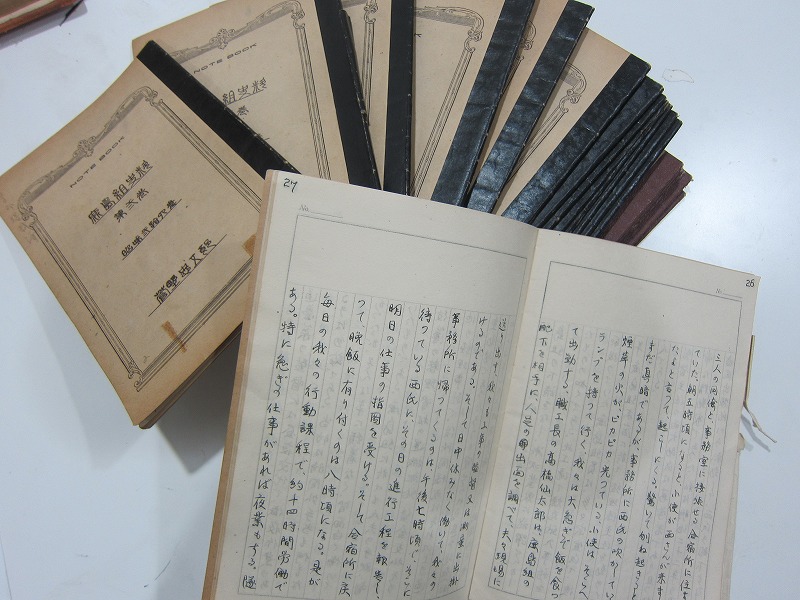 NOTE BOOK
鹿島組史料
第弐巻
菅野忠五郎
NOTE BOOK
鹿島組史料
26
三人の同僚と事務室に接続せる合宿所に住
ていた、朝五時頃になると、小使が西さんが来ま
したよと言って、起らしにくる。驚いて刎ね起きると
まだ真暗であるが事務所に西氏の吹かしてい
煙草の火がピカピカ光っている。小使はそこへ
ランプを持って行く。我々は大急ぎで飯を食っ
て出勤する。職工長の高橋仙太郎は鹿島組の
配下を相手に人造の出面を調べて、夫々現場に
27
No.
送り出す、我々も工事の監督又は測量に出掛
けるのである。そして日中休みなく働いて、我々の
事務所に帰ってくるのは午後七時頃、そこに
待っている西氏に、その日の進行工程を報告し、
明日の仕事の指図を受ける。そして合宿所に戻
って晩飯に有り付くのは八時頃になる。是が
毎日の我々の行動課程で、約十四時間労働で
ある。特に急ぎの仕事があれば夜業もする。随